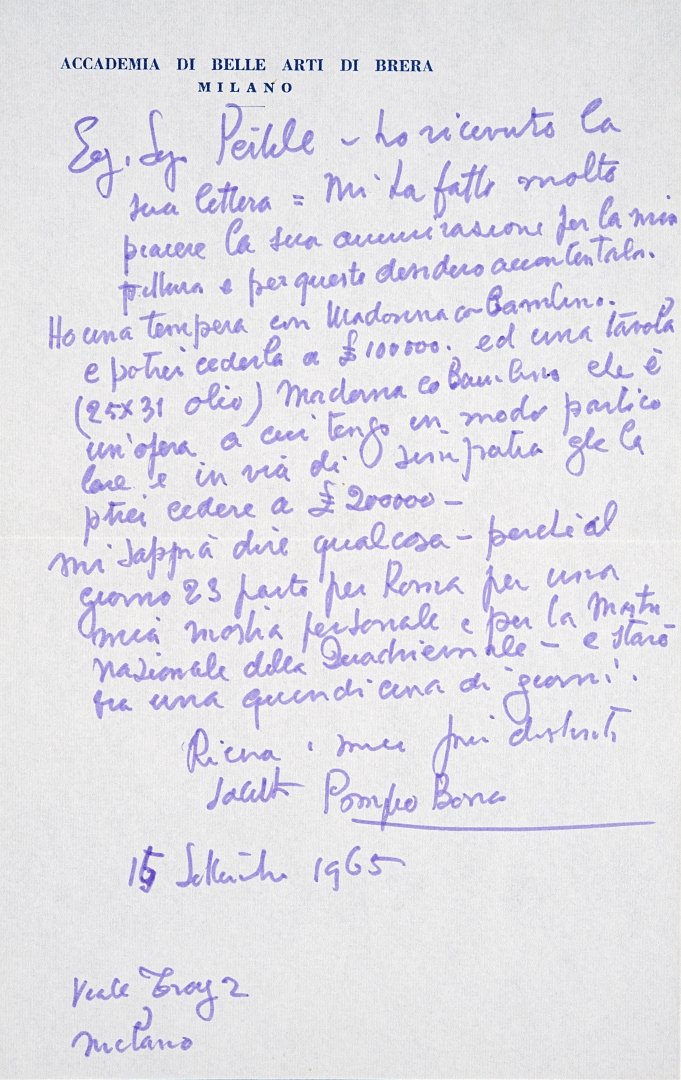 ACCADEMIA DI BELLE ARTI DI BRERA
MILANO
Eg. Sig. Peikle – ho ricevuto la
sua lettera = Mi ha fatto molto
piacere la sua ammirazione per la mia
pittura e per questo desidero accontentarla.
Ho una tempera con Madonna co Bambino.
e potrei cederla a £ 100000. ed una tavola
(25x31 olio) Madonna co Bambino che è
un'opera a cui tengo in modo partico
lare e in via di simpatia gle la
ptrei cedere a £ 200000 –
mi sappia dire qualcosa – perchè al
giorno 23 parto per Roma per una
mia mostra personale e per la Mostra
nazionale della Quadriennale – e starò
via una quindicina di giorni.
Riceva i miei più distinti
saluti Pompeo Borra
15 Settembre 1965
Viale 2
Milano